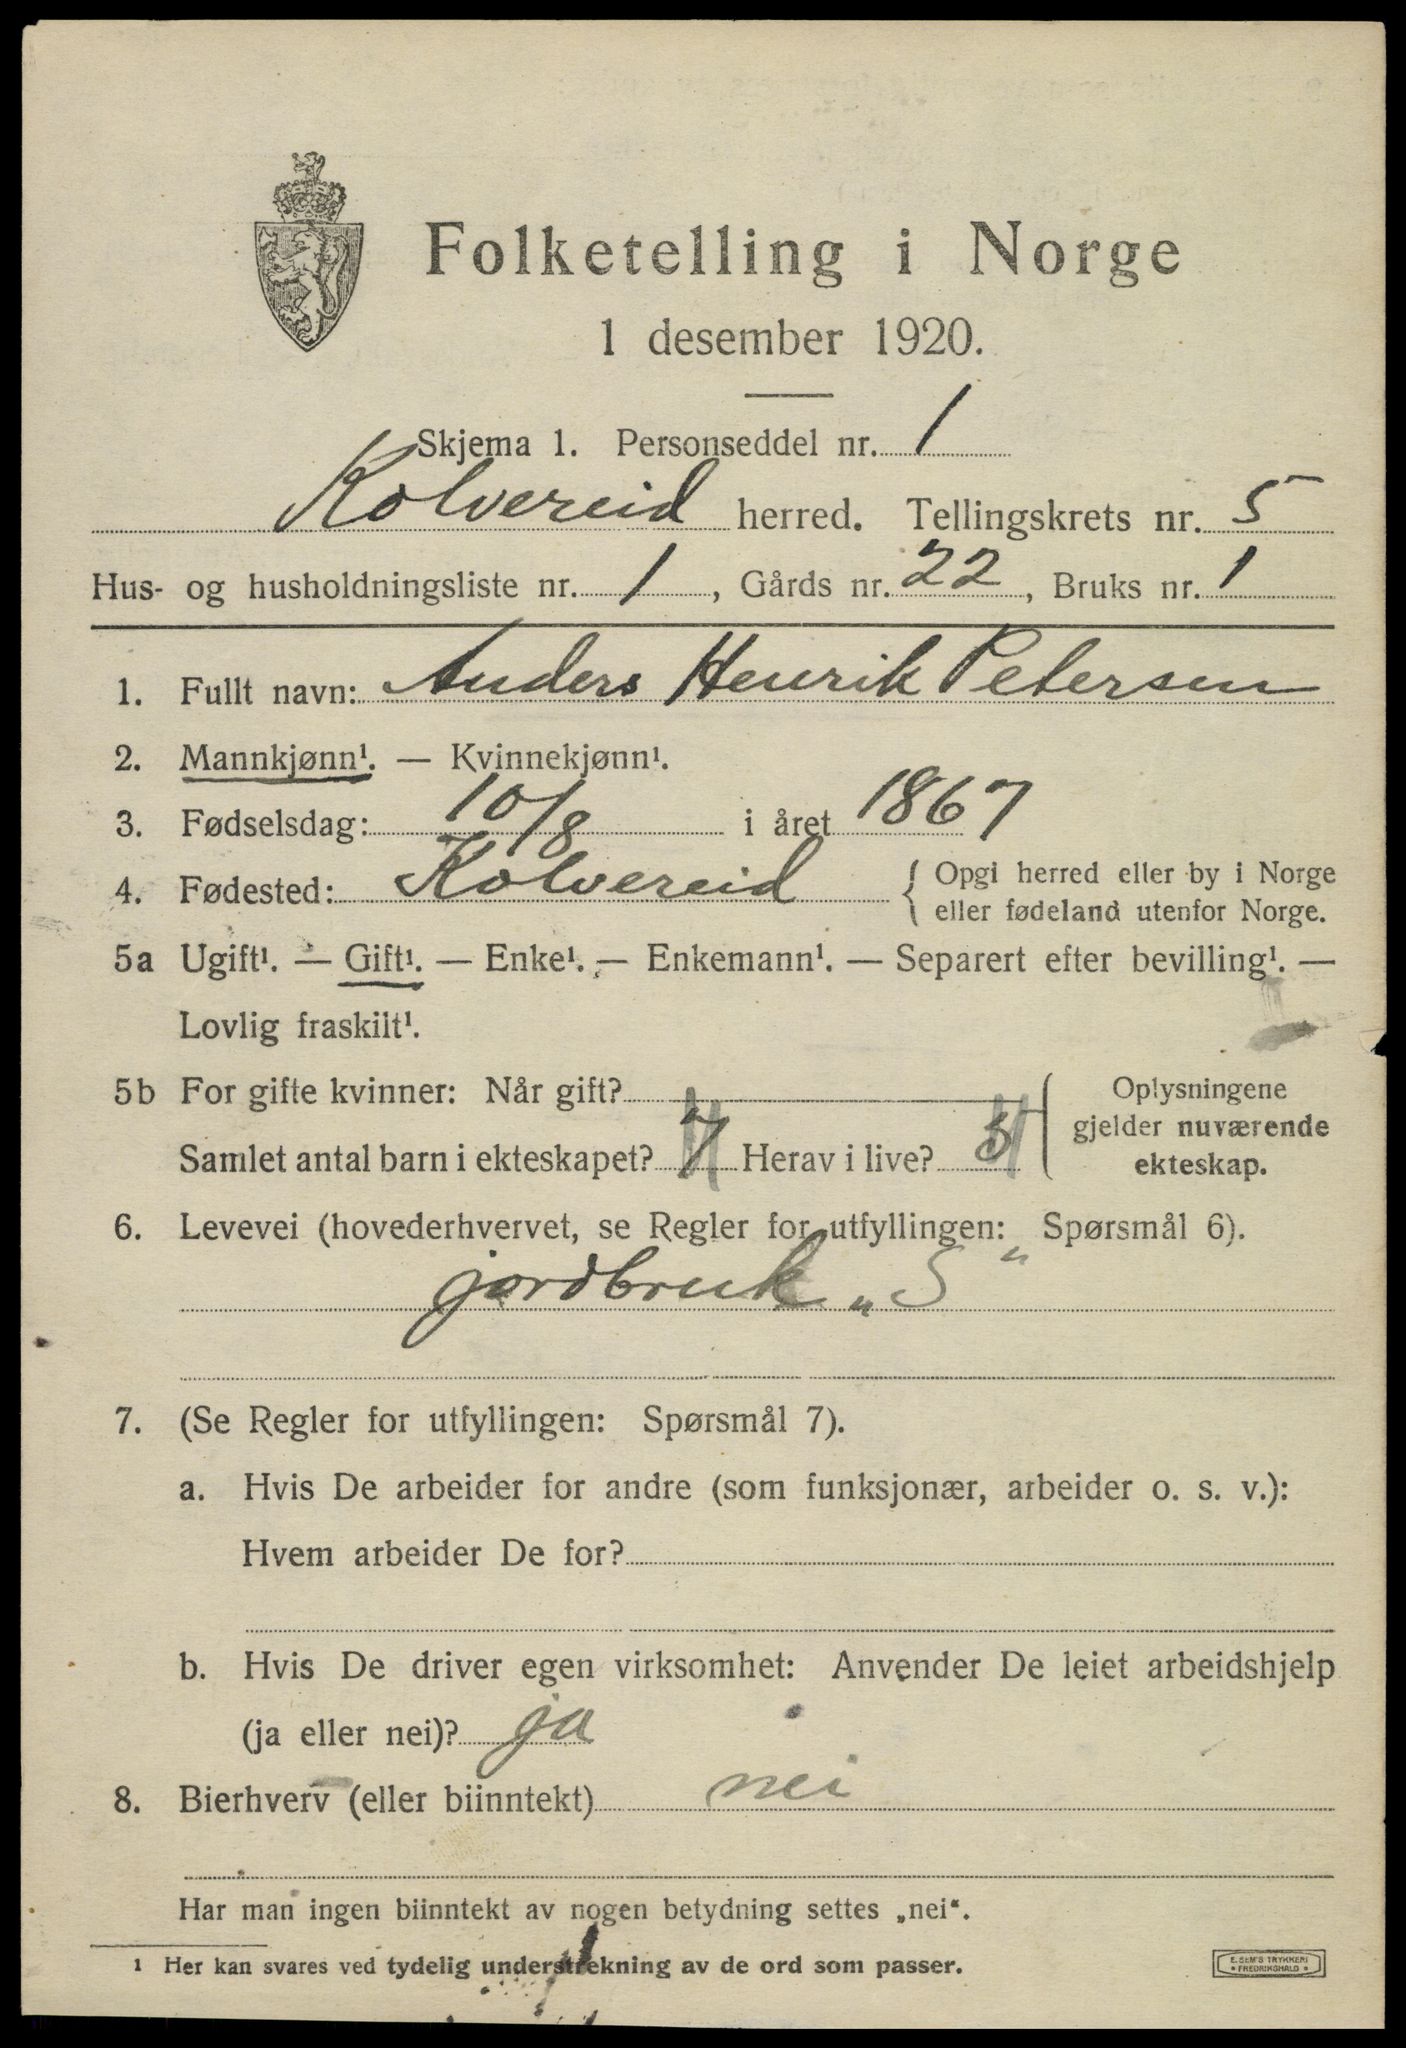 Folketelling i Norge
1 desember 1920.
Skjema 1. Personseddel nr. 1
Kolvereid herred. Tellingskrets nr. 5
Hus- og husholdningsliste nr. 1, Gårds nr. 22, Bruks nr. 1
1. Fullt navn: Anders Henrik Petersen
2. Mannkjønn¹. — Kvinnekjønn¹.
3. Fødselsdag: 10/8 i året 1867
4. Fødested: Kolvereid { Opgi herred eller by i Norge
eller fødeland utenfor Norge.
5a Ugift¹. — Gift¹. — Enke¹. — Enkemann¹. — Separert efter bevilling¹. —
Lovlig fraskilt¹.
5b For gifte kvinner: Når gift?
Samlet antal barn i ekteskapet? 7 Herav i live? 5
Oplysningene
gjelder nuværende
ekteskap.
6. Levevei (hovederhvervet, se Regler for utfyllingen: Spørsmål 6).
jordbruk „S"
7. (Se Regler for utfyllingen: Spørsmål 7).
a. Hvis De arbeider for andre (som funksjonær, arbeider o. s. v.):
Hvem arbeider De for?
b. Hvis De driver egen virksomhet: Anvender De leiet arbeidshjelp
(ja eller nei)? ja
8. Bierhverv (eller biinntekt) nei
Har man ingen biinntekt av nogen betydning settes „nei“.
¹ Her kan svares ved tydelig understrekning av de ord som passer.
E. SEM'S TRYKKERI
• FREDRIKSHALD •